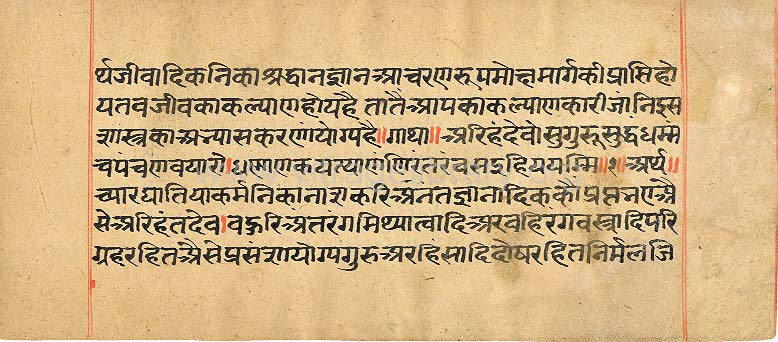 र्थजीवादिकनिका श्रद्धानज्ञानआचरणरूपमोक्षमार्गकीप्राप्तिहो
यतवजीवकाकल्याणहोयहै तातैआपकाकल्याणकारीजांनिइस
शास्त्रकाअभ्यासकरणांयोग्यहै॥गाथा॥ अरिहंदेवोसुगुरूसुद्धंधम्मं
चपंचणवयारो॥धणाणकयत्थाणंणिरंतरंवसइहिययम्मि॥१॥ अर्थ॥
च्यारघातियाकर्मनिकानाशकरिअनंतज्ञानादिककौप्राप्तनएअै
सेअरिहंतदेव।वहुरिअंतरंगमिथ्यात्वादिअरवहिरंगवस्त्रादिपरि
ग्रहरहितअैसेप्रसंशायोग्यगुरुअरहिंसादिदोषरहितनिर्मलजि